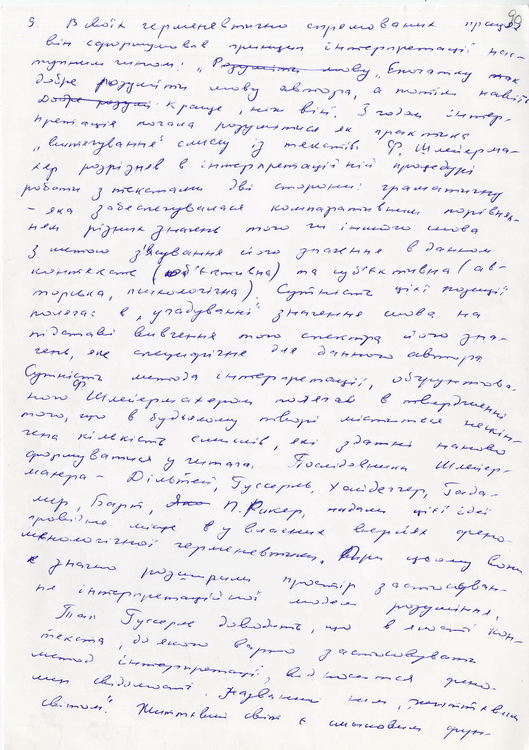 90
9. В своїх герменевтично спрямованих працях
він сформулював принцип інтерпретації нас-
тупним чином: „Розуміти мову „Спочатку так
добре розуміти мову автора, а потім навіть
Добре розумі краще, ніж він. Згодом інтер-
претація почала розумітися як практика
„витягування" смислу із текстів. Ф. Шлейєрма-
хер розрізняв в інтерпретаційній процедурі
роботи з текстами дві сторони: граматичну
- яка забезпечувалася компаративним порівнян-
ням різних значень того чи іншого слова
з метою з'ясування його значення в даному
контексті (об'єктивна) та суб'єктивна (ав-
торська, психологічна). Сутність цієї позиції
полягає в „угадуванні" значення слова на
підставі вивчення того спектра його зна-
чень, яке специфічне для данного автора
Сутність метода інтерпретації, обгрунтова-
ного Ф. Шлейєрмахером полягав в твердженні
того, що в будьякому творі міститься нескін-
чена кількість смислів, які здатні наново
формуватися у читача. Послідовники Шлейєр-
махера - Дільтей, Гуссерль, Хайдеггер, Гада-
мер, Барт, П. Рикер, надали цієї ідеї
провідне місце в у власних версіях фено-
менологічної герменевтики. При цьому вони
значно розширили простір застосуван-
ня інтерпретаційної моделі розуміння.
Так Гуссерль доводить, що в якості кон-
текста, до якого варто застосовувать
метод інтерпретації, відноситься фено-
мен свідомості, названий ним „життєвим
світом". Життєвий світ є смисловим фун-